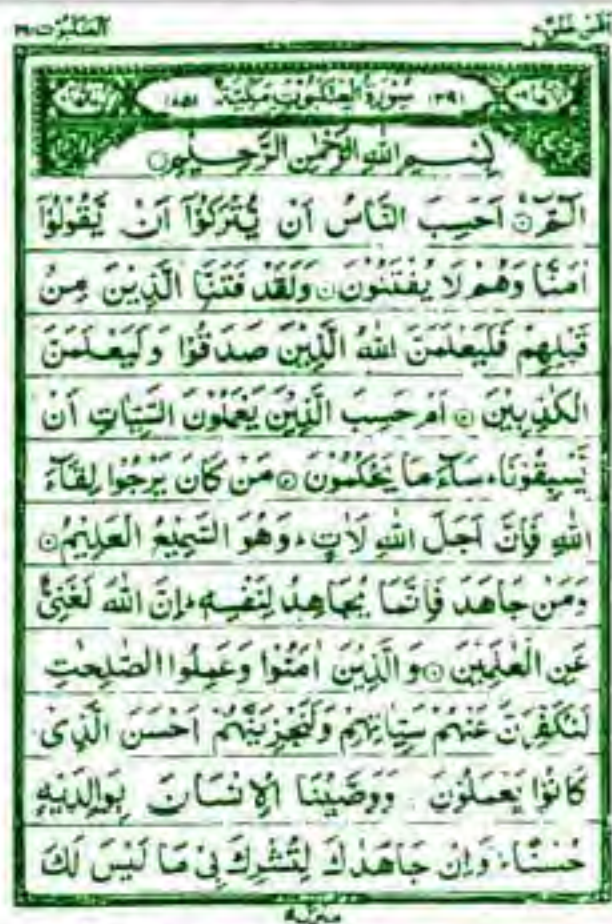 العنكبوت ٢٩
سُوْرَةُ الْعَنْكَبُوْتِ مَكِّيَّةٌ
بِسْمِ اللّٰهِ الرَّحْمٰنِ الرَّحِيْمِ
الٓمّٓ اَحَسِبَ النَّاسُ اَنْ يُّتْرَكُوْٓا اَنْ يَّقُوْلُوْٓا
اٰمَنَّا وَهُمْ لَا يُفْتَنُوْنَ وَلَقَدْ فَتَنَّا الَّذِيْنَ مِنْ
قَبْلِهِمْ فَلَيَعْلَمَنَّ اللّٰهُ الَّذِيْنَ صَدَقُوْا وَلَيَعْلَمَنَّ
الْكٰذِبِيْنَ اَمْ حَسِبَ الَّذِيْنَ يَعْمَلُوْنَ السَّيِّاٰتِ اَنْ
يَّسْبِقُوْنَا سَآءَ مَا يَحْكُمُوْنَ مَنْ كَانَ يَرْجُوْا لِقَآءَ
اللّٰهِ فَاِنَّ اَجَلَ اللّٰهِ لَاٰتٍ وَهُوَ السَّمِيْعُ الْعَلِيْمُ
وَمَنْ جَاهَدَ فَاِنَّمَا يُجَاهِدُ لِنَفْسِهٖ اِنَّ اللّٰهَ لَغَنِيٌّ
عَنِ الْعٰلَمِيْنَ وَالَّذِيْنَ اٰمَنُوْا وَعَمِلُوا الصّٰلِحٰتِ
لَنُكَفِّرَنَّ عَنْهُمْ سَيِّاٰتِهِمْ وَلَنَجْزِيَنَّهُمْ اَحْسَنَ الَّذِيْ
كَانُوْا يَعْمَلُوْنَ وَوَصَّيْنَا الْاِنْسَانَ بِوَالِدَيْهِ
حُسْنًا وَاِنْ جَاهَدٰكَ لِتُشْرِكَ بِيْ مَا لَيْسَ لَكَ